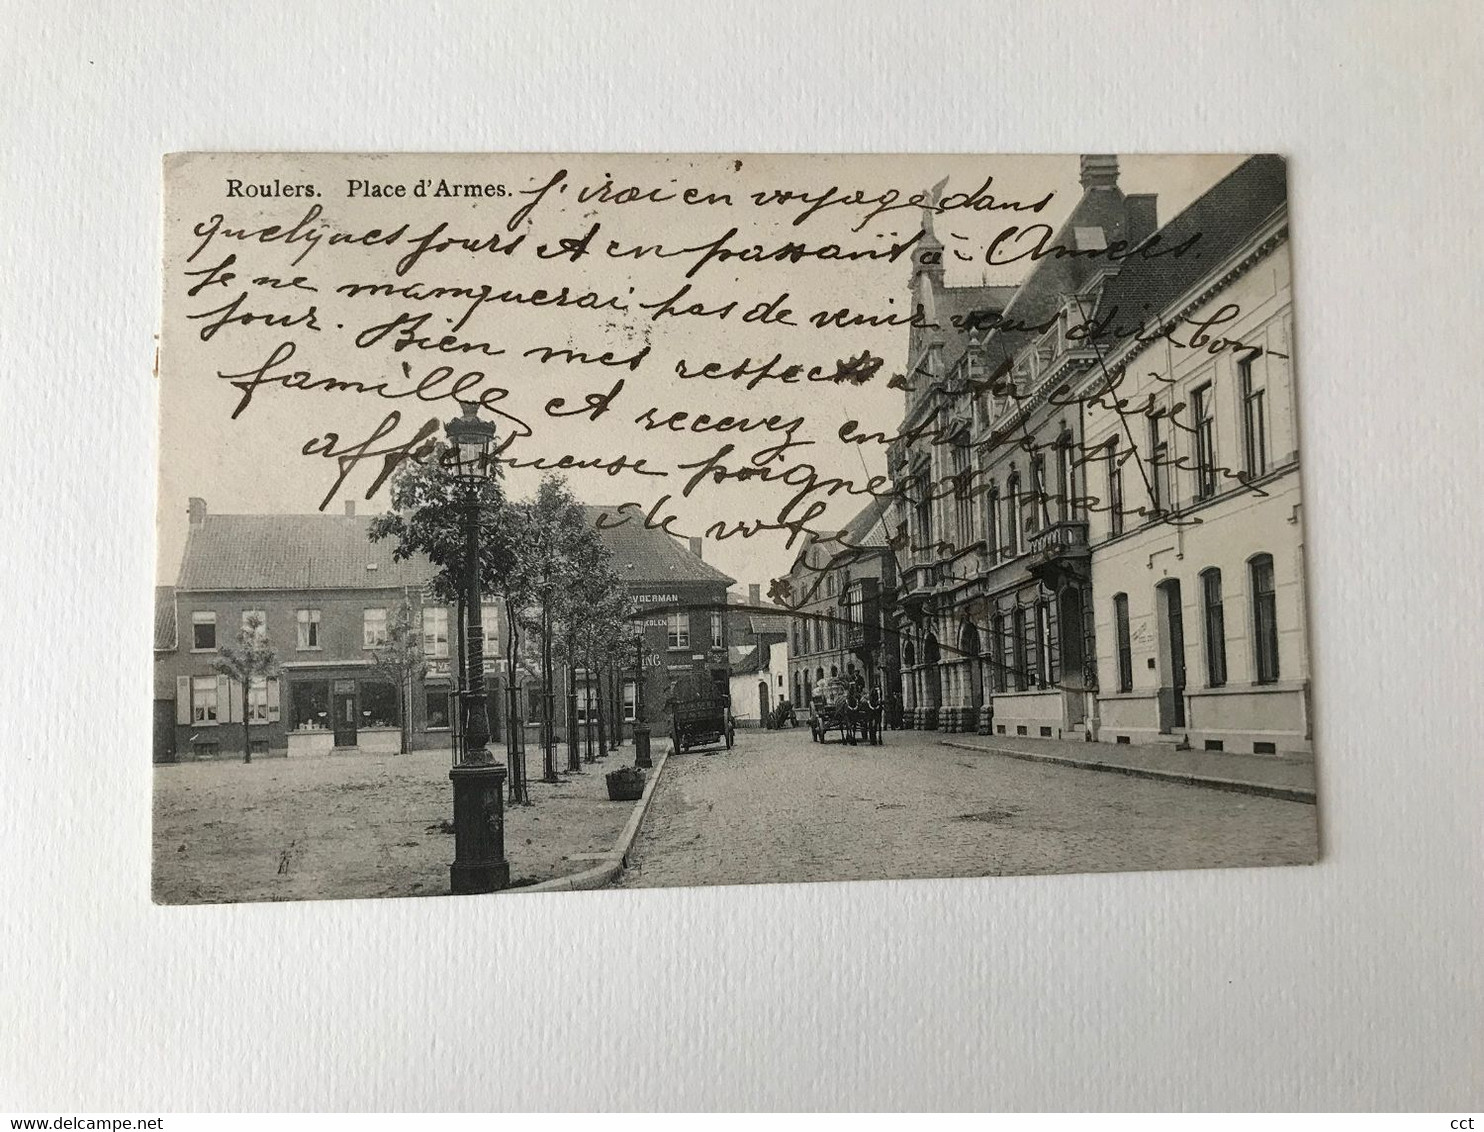 Roulers. Place d'Armes.
J'irai en voyage dans
quelques jours et en passant à
Je ne manquerai pas de venir vous dire bon-
jour. Bien mes respects à la chère
famille et recevez entretemps une
affectueuse poignée de main
de votre
VOERMAN
KOLEN
cct